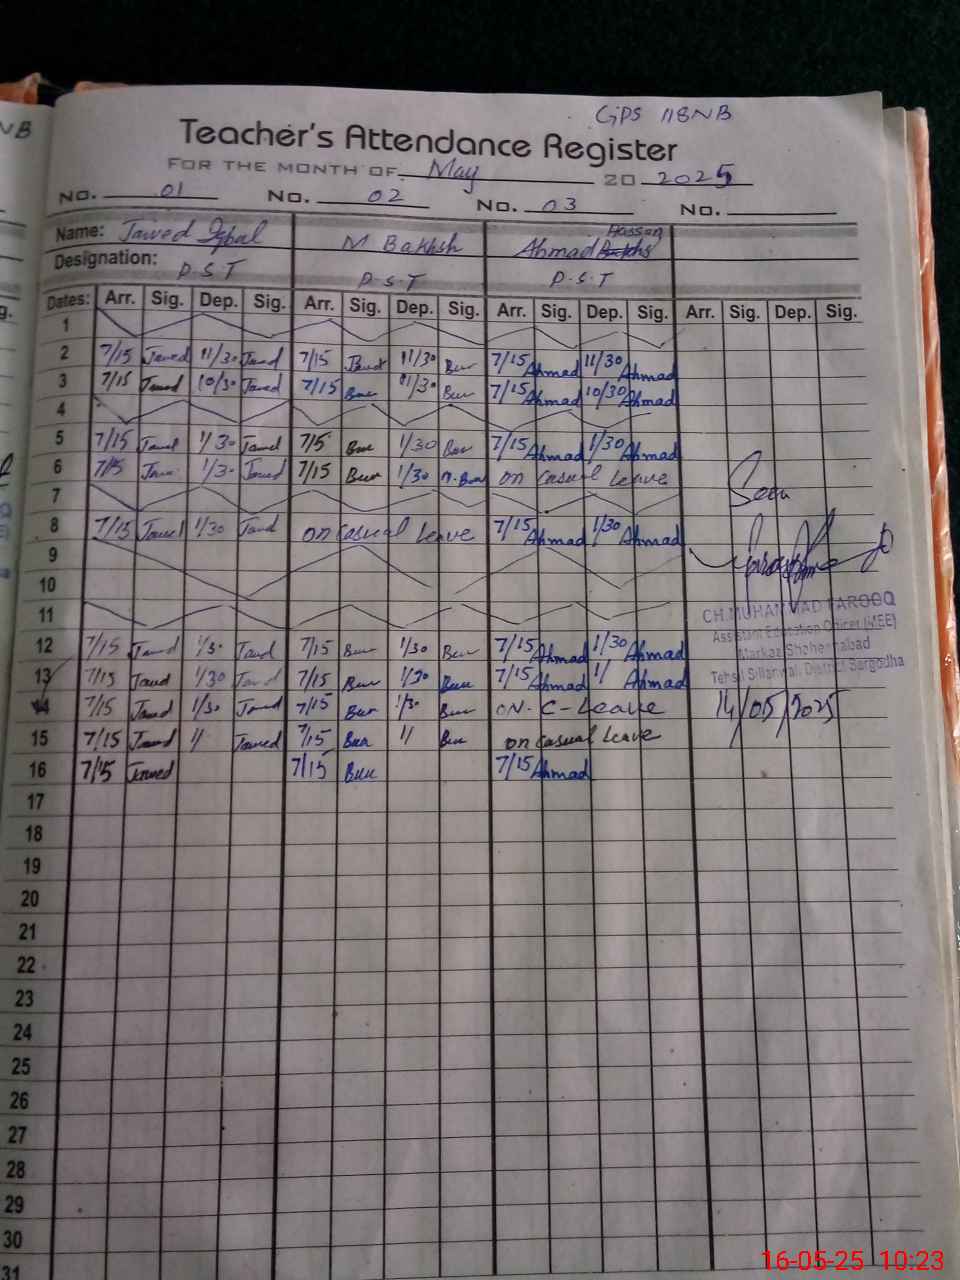 GPS 118NB
Teacher's Attendance Register
FOR THE MONTH OF May 20 2025
No. 01 No. 02 No. 03 No.
Name: Javed Iqbal M Bakhsh Ahmad Hassan
Designation: P.S.T P.S.T P.S.T
Dates: Arr. Sig. Dep. Sig. Arr. Sig. Dep. Sig. Arr. Sig. Dep. Sig. Arr. Sig. Dep. Sig.
1
2 7/15 Javed 11/30 Javed 7/15 11/30 7/15 Ahmad 11/30 Ahmad
3 7/15 Javed 10/30 Javed 7/15 11/30 7/15 Ahmad 10/30 Ahmad
4
5 7/15 Javed 1/30 Javed 7/5 1/30 7/15 Ahmad 1/30 Ahmad
6 7/15 1/30 Javed 7/15 1/30 on Casual Leave
7
8 7/15 Javed 1/30 Javed on Casual Leave 7/15 Ahmad 1/30 Ahmad
9
10
11
12 7/15 Javed 1/30 Javed 7/15 1/30 7/15 Ahmad 1/30 Ahmad
13 7/15 Javed 1/30 Javed 7/15 1/30 7/15 Ahmad 1/ Ahmad
14 7/15 Javed 1/30 Javed 7/15 1/30 ON-C-Leave
15 7/15 Javed 1/ Javed 7/15 1/ on Casual Leave
16 7/15 Javed 7/15 7/15 Ahmad
17
18
19
20
21
22
23
24
25
26
27
28
29
30
31
Seen
CH.MUHAMMAD FAROOQ
Assistant Education Officer (MEE)
Markaz Shaheenabad
Tehsil Sillanwali District Sargodha
14/05/2025
NB
16-05-25 10:23